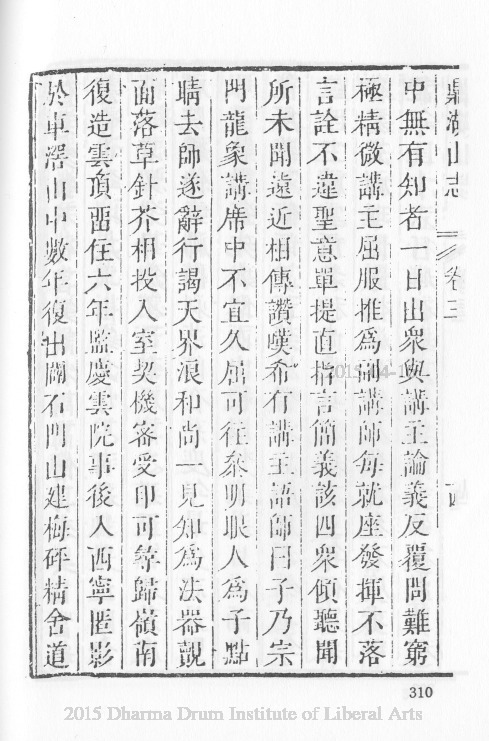 鼎湖山志 卷三 四
中無有知者一日出衆與講主論義反覆問難窮
極精微講主屈服推爲副講師每就座發揮不落
言詮不違聖意單提直指言簡義該四衆傾聽聞
所未聞遠近相傳讚嘆希有講主語師曰子乃宗
門龍象講席中不宜久屈可往叅明眼人爲子點
睛去師遂辭行謁天界浪和尚一見知爲法器覿
面落草針芥相投入室契機密受印可尋歸嶺南
復造雲頂畱住六年監慶雲院事後入西寧匿影
於車滘山中數年復出闢石門山建梅砰精舍道
310
2015 Dharma Drum Institute of Liberal Arts